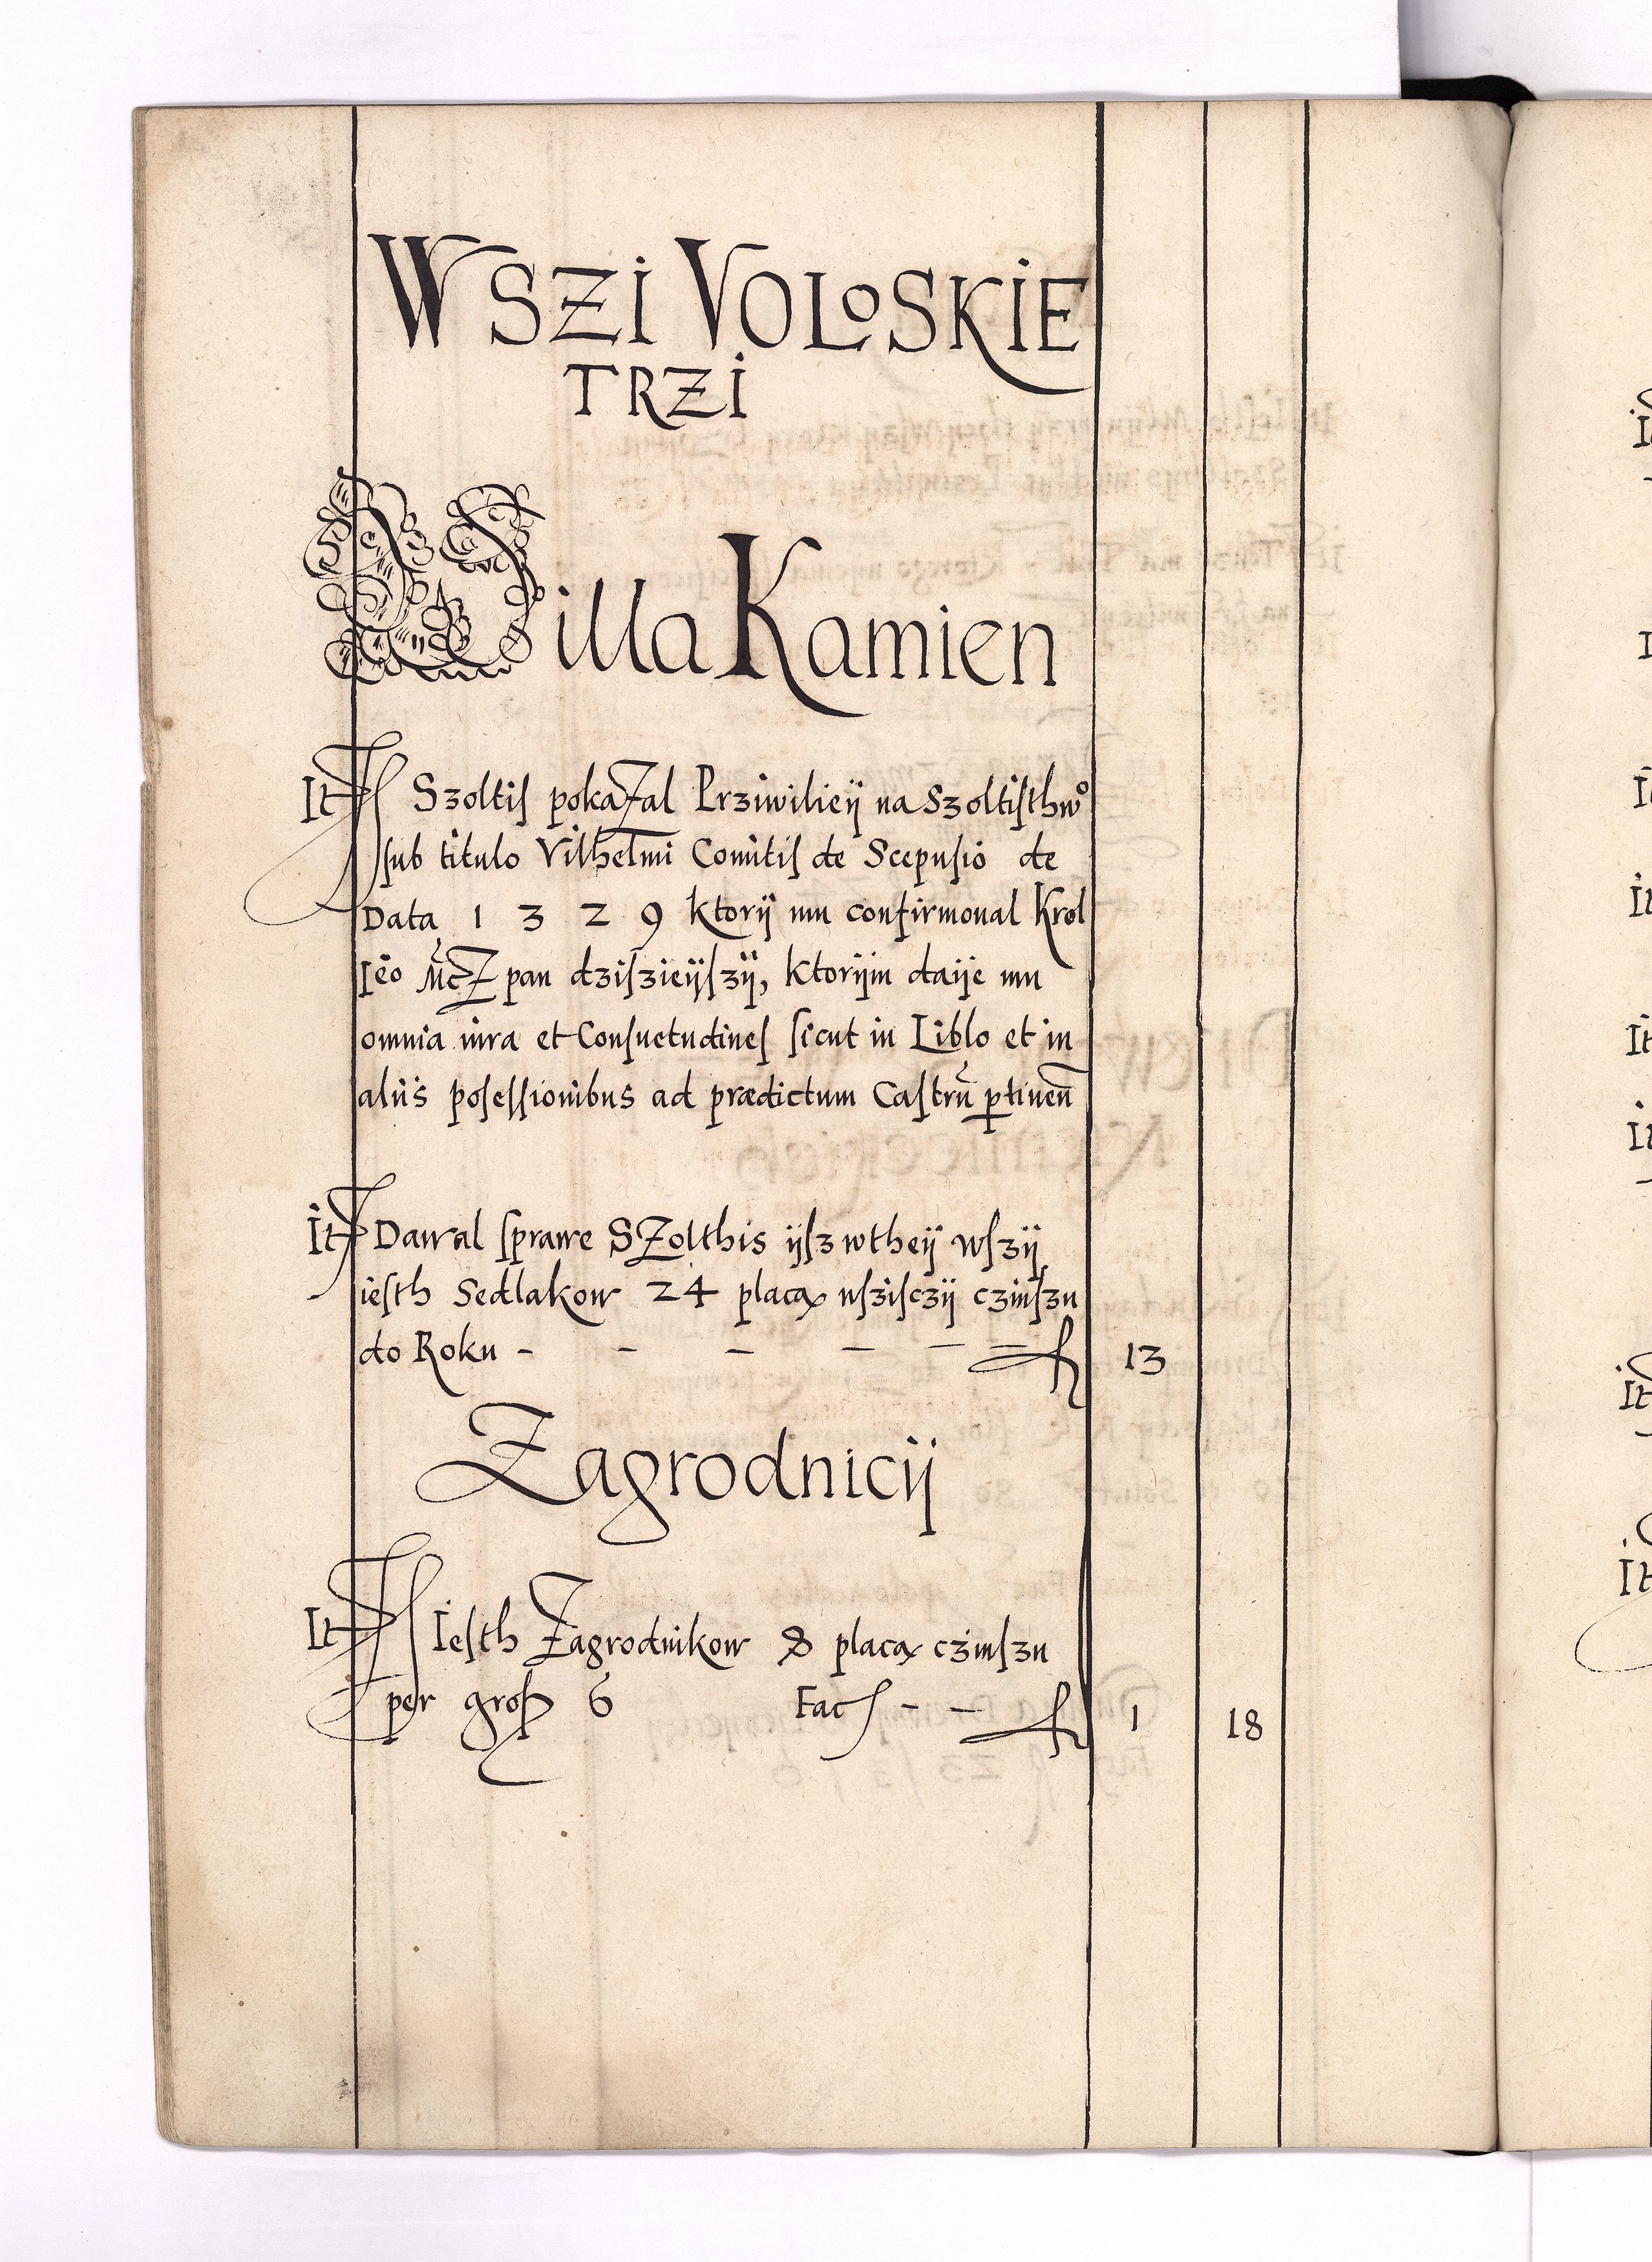 WSZI VOLOSKIE
TRZI
Villa Kamien
It Szoltiſ pokaZal Prziwilieÿ na Szoltiſthwº
ſub titulo Vilhelmi Comitiſ de Scepuſio de
Data 1 3 2 9 ktorÿ mu confirmoual Krol
Iēo M̃cZ pan dziſzieÿſzÿ, ktorÿm daÿe mu
omnia iura et Conſuetudineſ ſicut in Liblo et in
aliis poſeſſionibus ad prædictum Caſtrū ꝑtinen̄
It Dawal ſprawe SZolthis ÿſz wtheÿ wſzÿ
ieſth Sedlakow 24 placą wſziſczÿ czinſzu
do Roku - - - - - - fl 13
Zagrodnicÿ
It Ieſth Zagrodnikow 8 placą czinſzu
per groſz 6 Fac - - fl 1 18